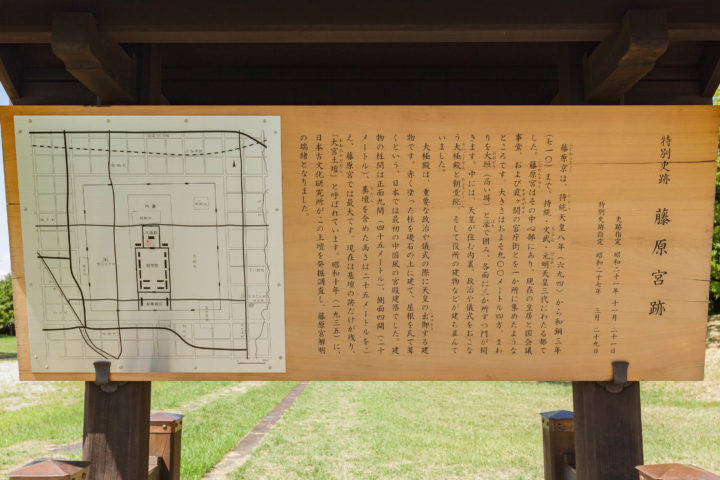 特別史跡　藤原宮跡
史跡指定　昭和二十一年　十一月　二十一日
特別史跡指定　昭和二十七年　三月　二十九日
藤原京は、持統天皇八年（六九四）から和銅三年
（七一〇）まで、持統・文武・元明天皇三代にわたる都で
した。藤原宮はその中心部にあり、現在の皇居と国会議
事堂、および霞ヶ関の官庁街とを一か所に集めたような
ところです。大きさはおよそ九〇〇メートル四方、まわ
りを大垣（高い塀）と濠で囲み、各面に三か所ずつ門が開
きます。中には、天皇が住む内裏、政治や儀式をおこな
う大極殿と朝堂院、そして役所の建物などが建ち並んで
いました。
大極殿は、重要な政治や儀式の際に天皇の出御する建
物です。赤く塗った柱を礎石の上に建て、屋根を瓦で葺
くという、日本では最初の中国風の宮殿建築でした。建
物の柱間は正面九間（四十五メートル）、側面四間（二十
メートル）、基壇を含めた高さは二十五メートルをこ
え、藤原宮では最大です。現在は基壇の跡だけが残り、
「大宮土壇」と呼ばれています。昭和十年（一九三五）に、
日本古文化研究所がこの土壇を発掘調査し、藤原宮解明
の端緒となりました。
内裏
大極殿
朝堂院